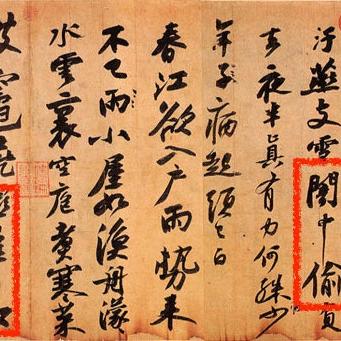 汙燕支雪闇中偷負
去夜半真有力何殊少
年子病起須已白
春江欲入戶雨勢來
不已雨小屋如漁舟濛
水雲裏空庖煮寒菜
破竈燒濕葦